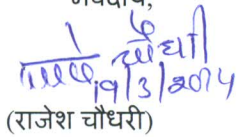 भवदीय,
चौधरी
19/3/2014
(राजेश चौधरी)